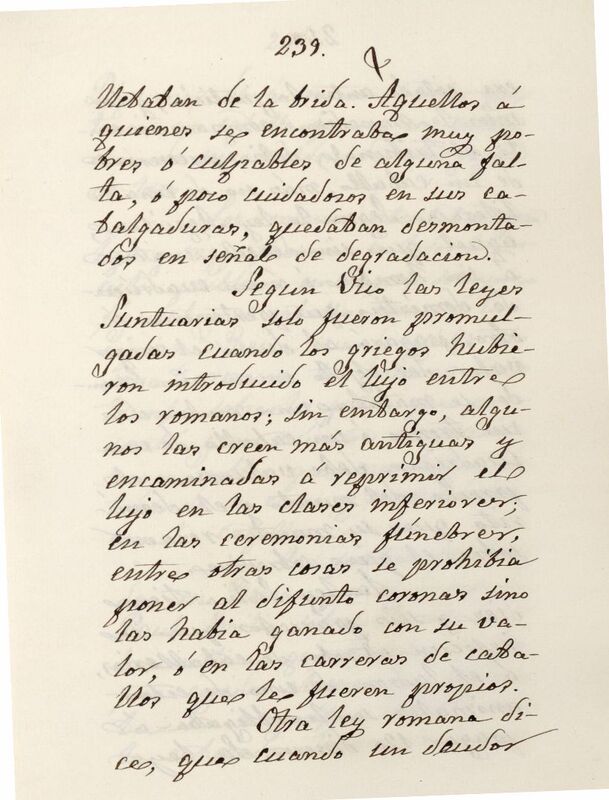 239.
llebaban de la brida. Aquellos á
quienes se encontraba muy po-
bres ó culpables de alguna fal-
ta, ó poco cuidadosos en sus ca-
balgaduras, quedaban desmonta-
dos en señal de degradacion.
Segun Vico las leyes
Suntuarias solo fueron promul-
gadas cuando los griegos hubie-
ron introducido el lujo entre
los romanos; sin embargo, algu-
nos las creen más antiguas y
encaminadas á reprimir el
lujo en las clases inferiores;
en las ceremonias fúnebres,
entre otras cosas se prohibia
poner al difunto coronas sino
las habia ganado con su va-
lor, ó en las carreras de caba-
llos que le fueren propios.
Otra ley romana di-
ce, que cuando un deudor